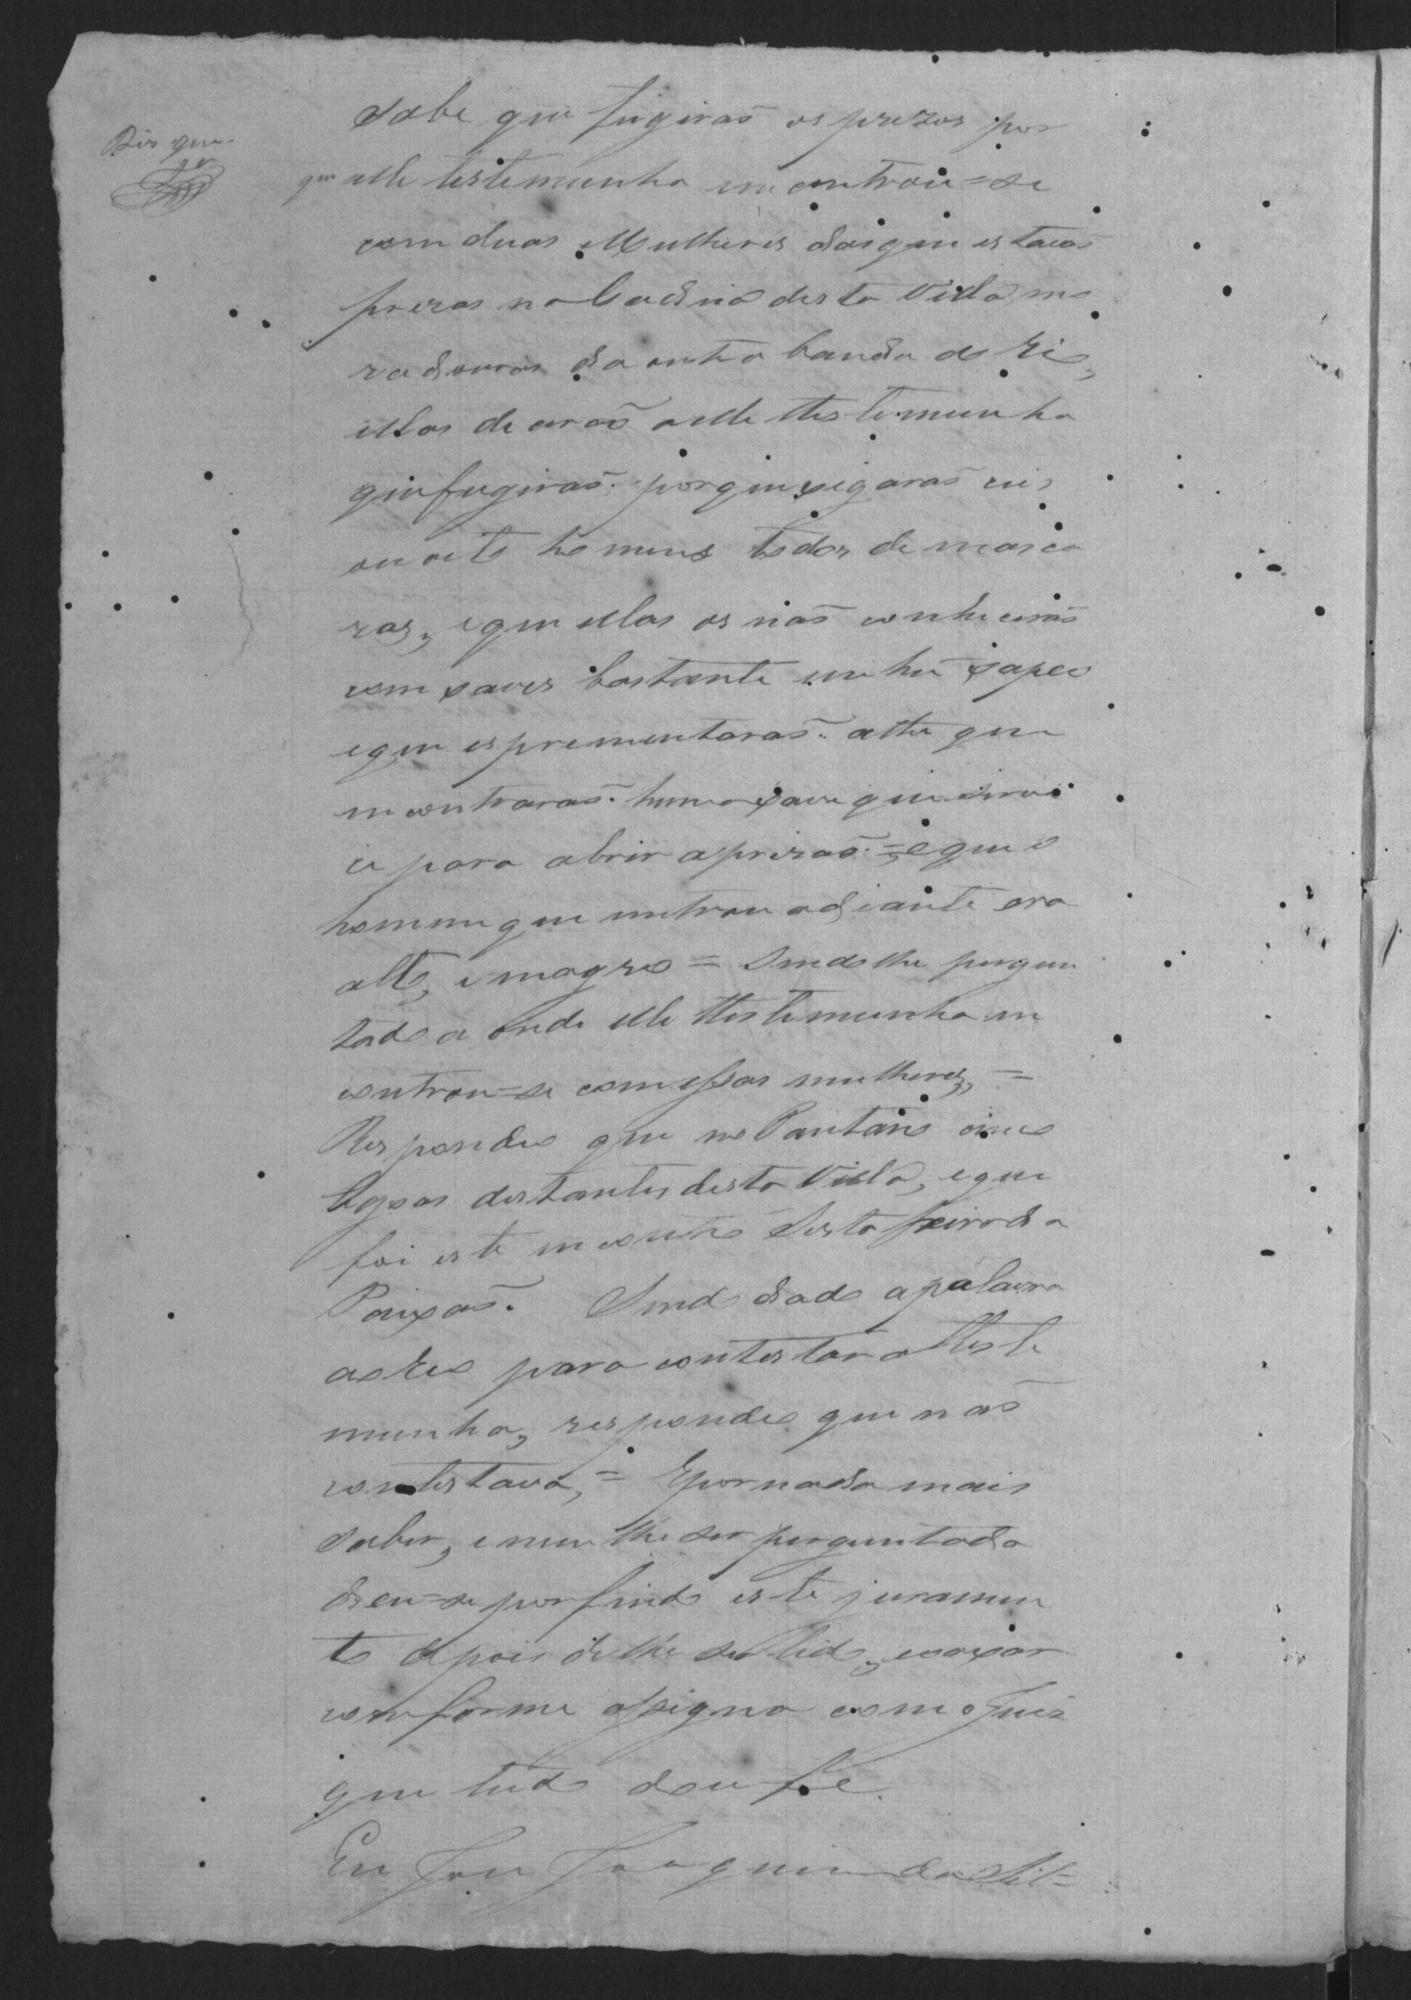 Diz que
sabe que fugirão os prezos por
que elle testemunha emcontrou=se
com duas Mulheres das que estavão
prezas na Cadêia desta Villa, mo
radouras da outra banda do Rio,
ellas dicerão a elle testemunha
que fugirão porque xegarão seis
ou oito homens todos de masca
ras, e que ellas os não conhecerão
com xaves bastante em hũ xapeo
e que esprementarão athe que
incontrarão huma xave que servi
o para abrir a prizão = e que o
homem que emtrou adiante era
alto, e magro = Sendo lhe pergun
tado a onde elle testemunha in
controu=se com essas mulheres, =
Respondeo que no Pantano cinco
legoas distantes desta Villa, e que
foi este incontro Sesta feira da
Paixão. Sendo dado a palavra
ao reo para contestar a teste
munha, respondeo que não
contestava, = E por nada mais
saber, e nem lhe ser perguntado
deu=se por findo este juramen
to depois de lhe ser lido, e o axar
conforme assigna com o Juiz
que tudo dou fé.
Eu José Joaquim da Sil=